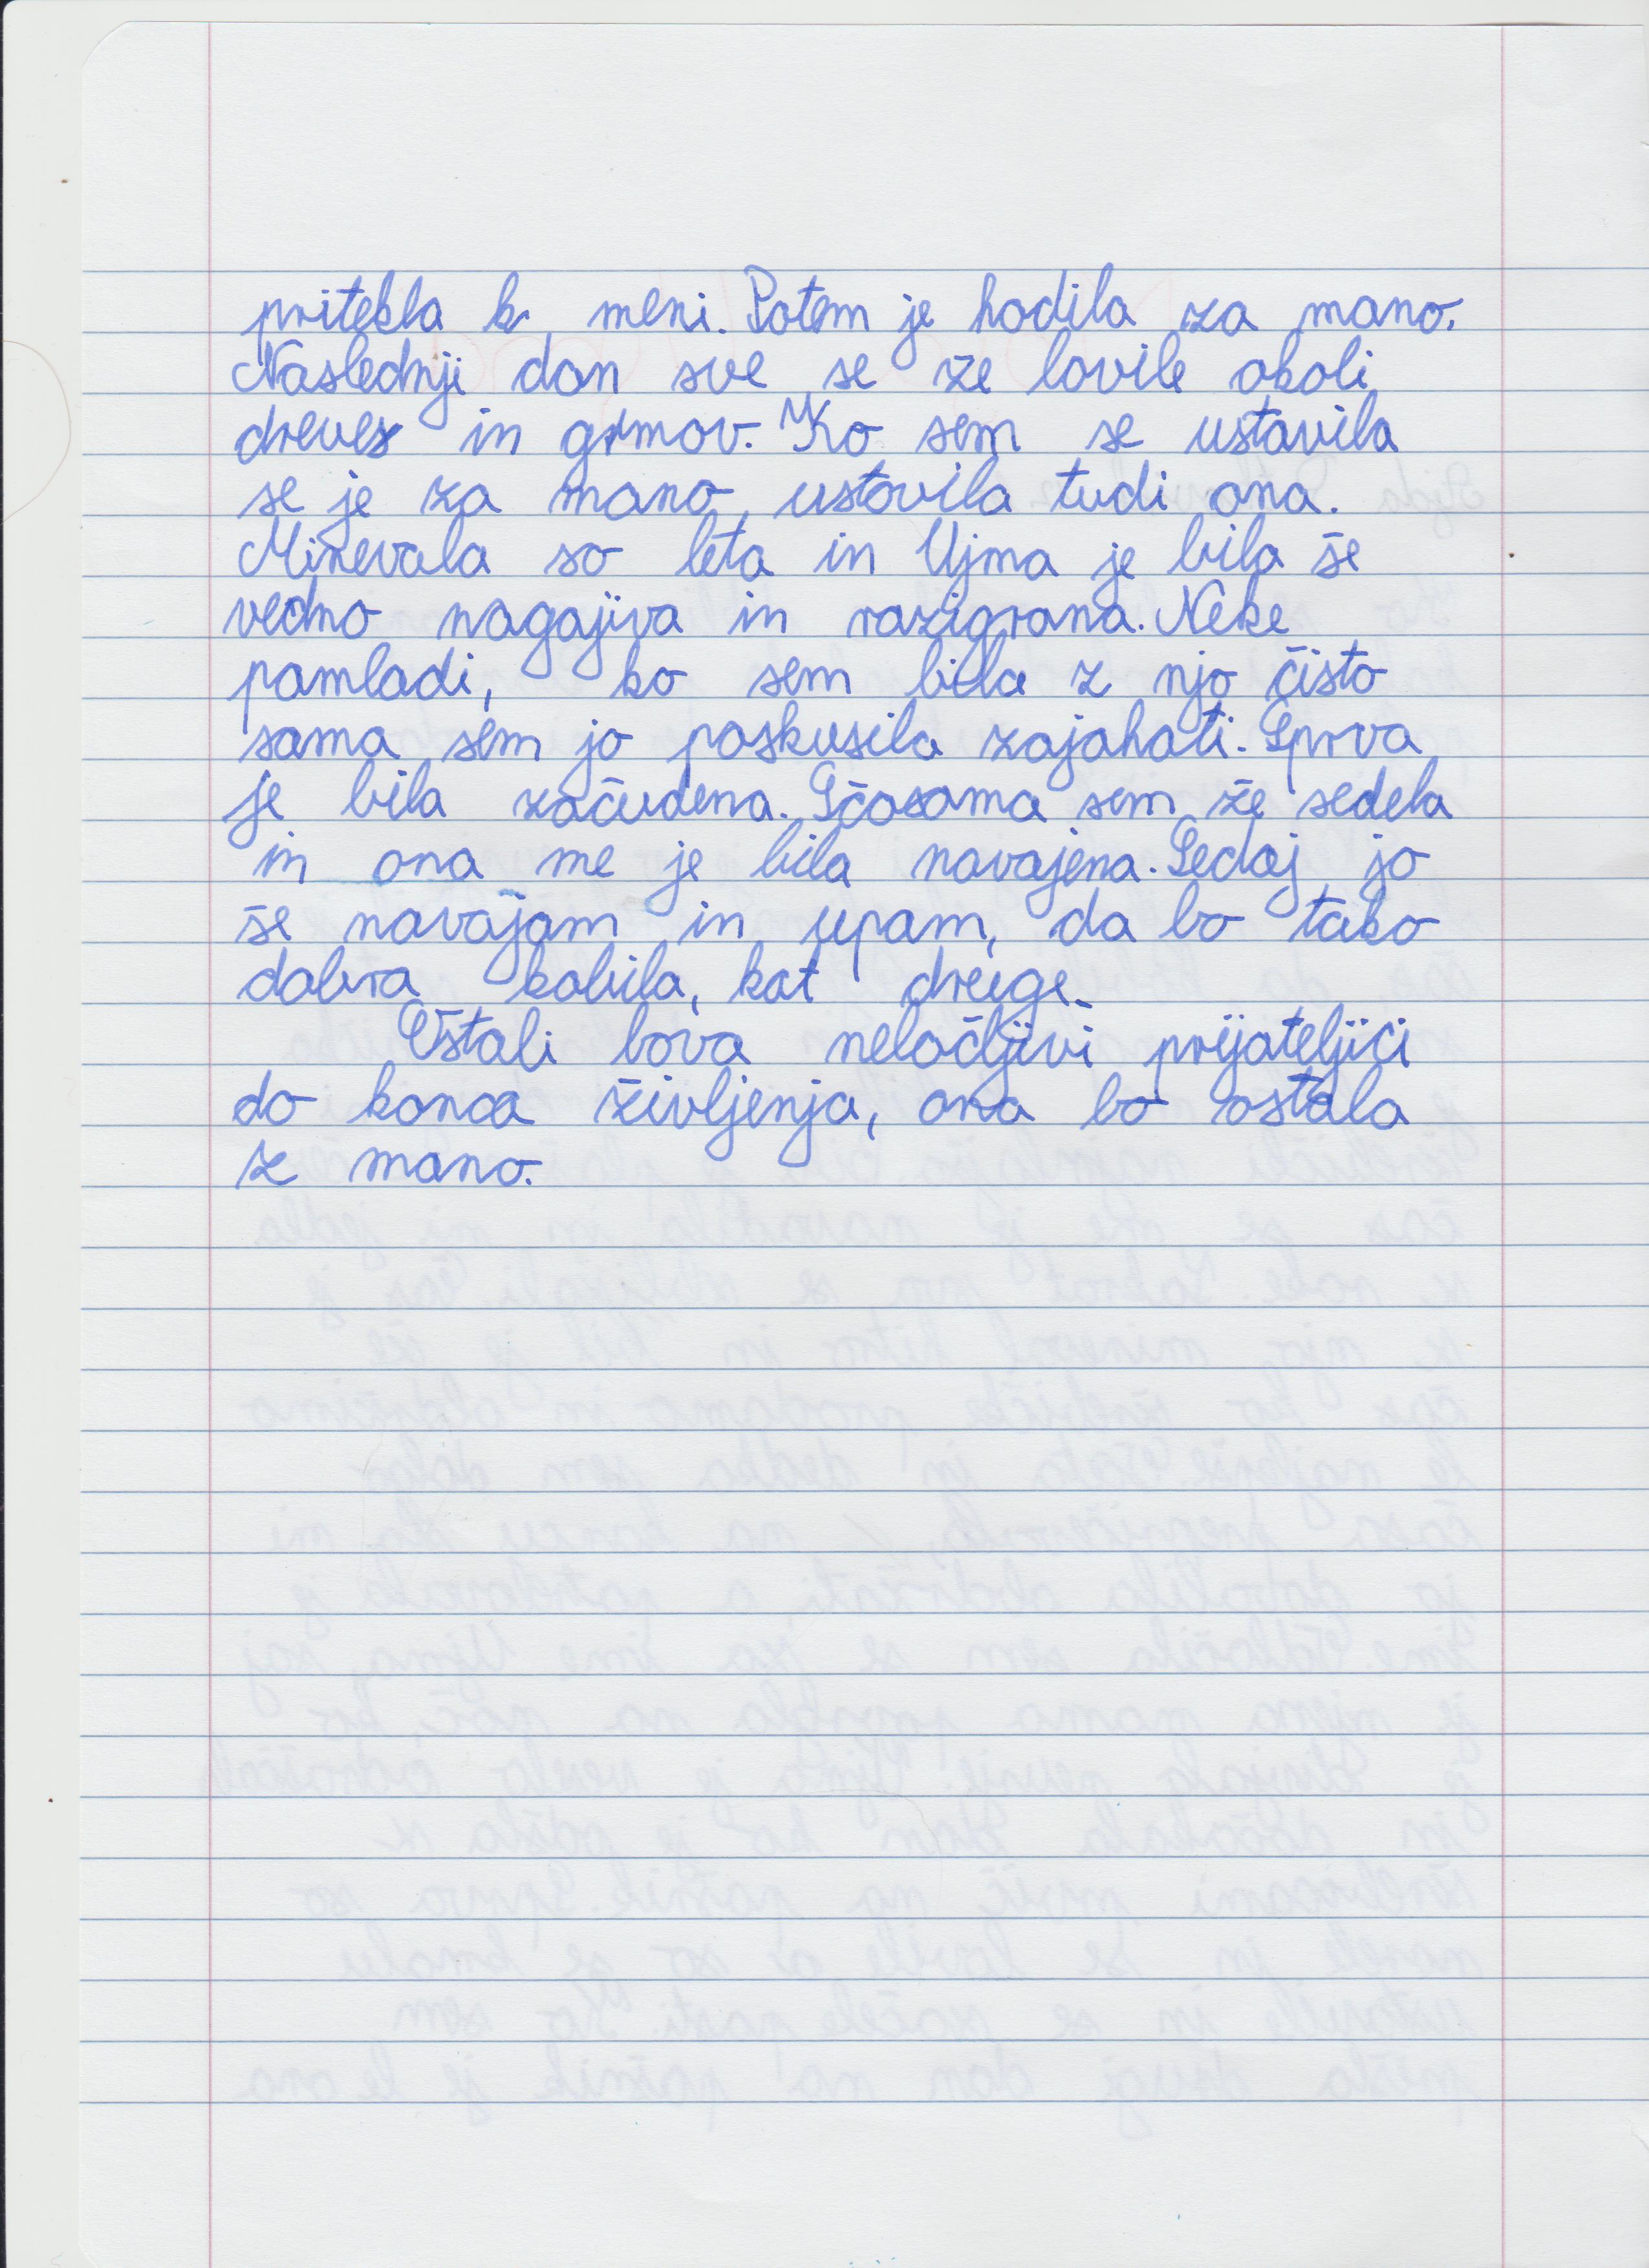 pritekla k meni. Potem je hodila za mano.
Naslednji dan sve se že lovile okoli
dreves in grmov. Ko sem se ustavila
se je za mano ustovila tudi ona.
Minevala so leta in Ujma je bila še
vedno nagajiva in razigrana. Neke
pamladi, ko sem bila z njo čisto
sama sem jo poskusila zajahati. Sprva
je bila začudena. Sčasama sem že sedela
in ona me je bila navajena. Sedaj jo
še navajam in upam, da bo tako
dobra kobila, kat druge.
Ostali bova neločljivi prijateljici
do konca življenja, ona bo ostala
z mano.